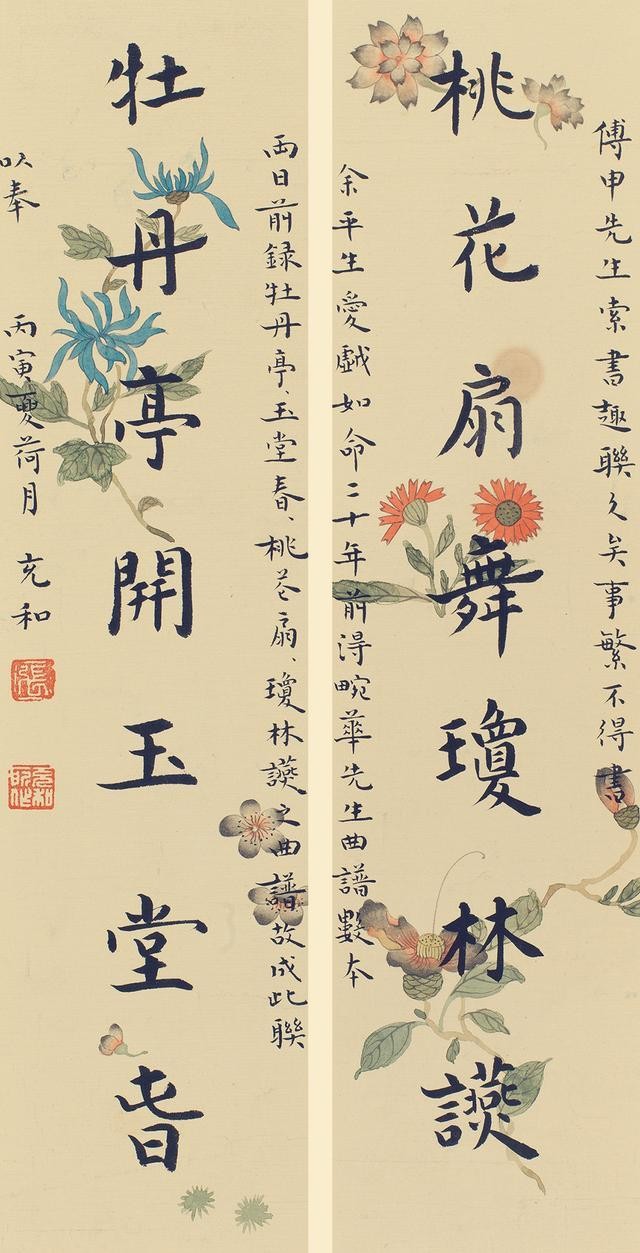 傅申先生索書趣聯久矣事繁不得書
桃花扇舞瓊林讌
余平生愛戱如命二十年前得畹華先生曲譜數本
兩日前録牡丹亭、玉堂春、桃花扇、瓊林讌之曲譜故成此聯
牡丹亭開玉堂旾
以奉
丙寅夏荷月 充和
張